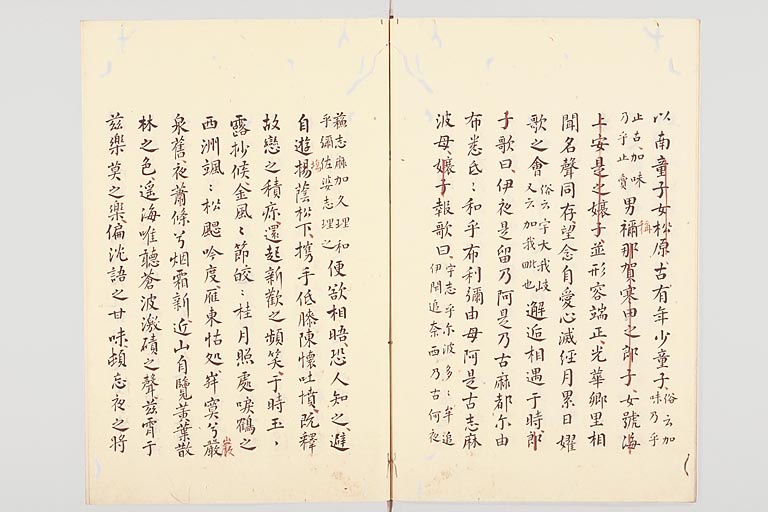 以南童子女松原古有年少童子俗云加味乃乎
止古加味乃乎止賣男稱那賀寒田之郎子女號海
上安是之孃子並形容端正光華鄉里相
聞名聲同存望念自愛心滅經月累日嬥
歌之會俗云宇大我岐又云加我毗也邂逅相遇于時郎
子歌曰伊夜是留乃阿是乃古麻都尓由
布悉氐々和乎布利彌由母阿是古志麻
波母孃子報歌曰宇志乎尓波多々牟追伊閇追奈西乃古何夜
蘓志麻加久理和乎彌佐婆志理之便欲相晤恐人知之避
自遊場蔭松下携手低膝陳懷吐憤既釋
故戀之積疹還起新歡之頻笑于時玉
露抄候金風々節皎々桂月照處唳鶴之
西洲颯々松颸吟度雁東怙処岸寞兮嚴
泉舊夜蕭條兮烟霜新近山自覽黃葉散
林之色遥海唯聽蒼波激磧之聲茲霄于
茲樂莫之樂偏沈語之甘味頓忘夜之將